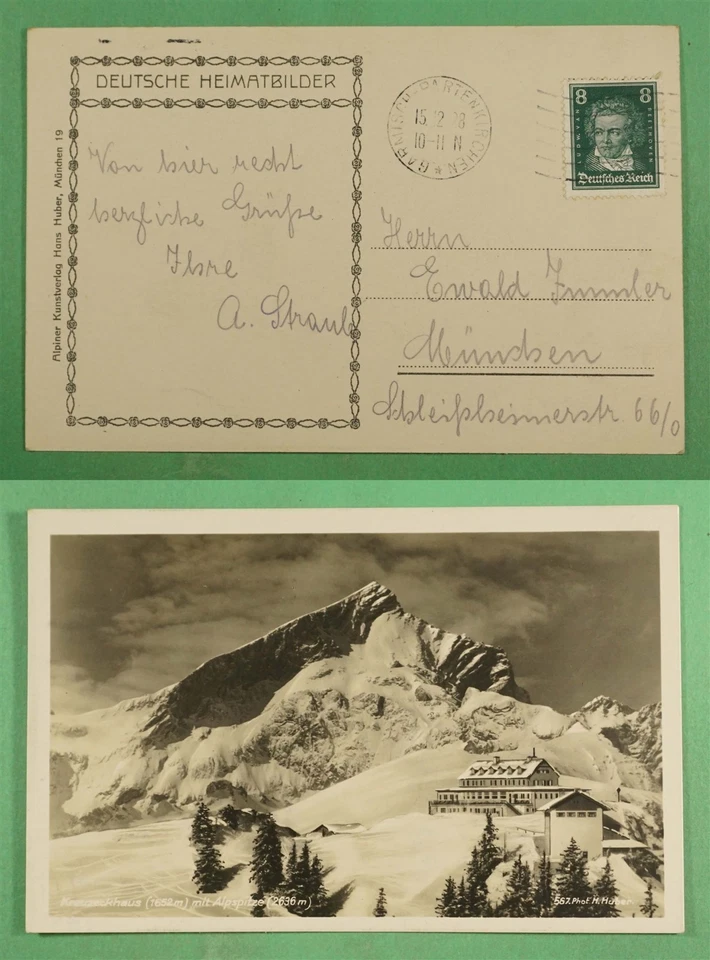 DEUTSCHE HEIMATBILDER
Alpiner Kunstverlag Hans Huber, München 19
Von hier recht
herzliche Grüße
Ihre
A. Straub
GARMISCH-PARTENKIRCHEN *
15.12.28
10-11 N
8 8
LUDW. VAN BEETHOVEN
Deutsches Reich
Herrn
Ewald Immler
München
Schleißheimerstr. 66/0
Kreuzeckhaus (1652m) mit Alpspitze (2636m)
557. Phot. H. Huber.